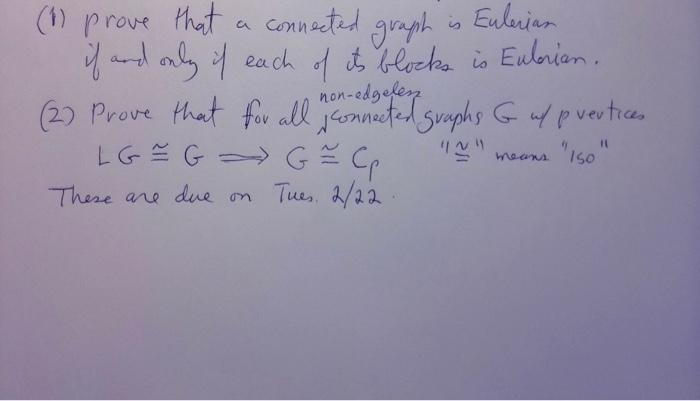 (1) prove that a connected graph is Eulerian
if and only if each of its blocks is Eulerian.
(2) Prove that for all non-edgeless connected graphs G w/ p vertices
LG ≅ G ⟹ G ≅ Cp "≅" means "iso"
These are due on Tues. 2/22.